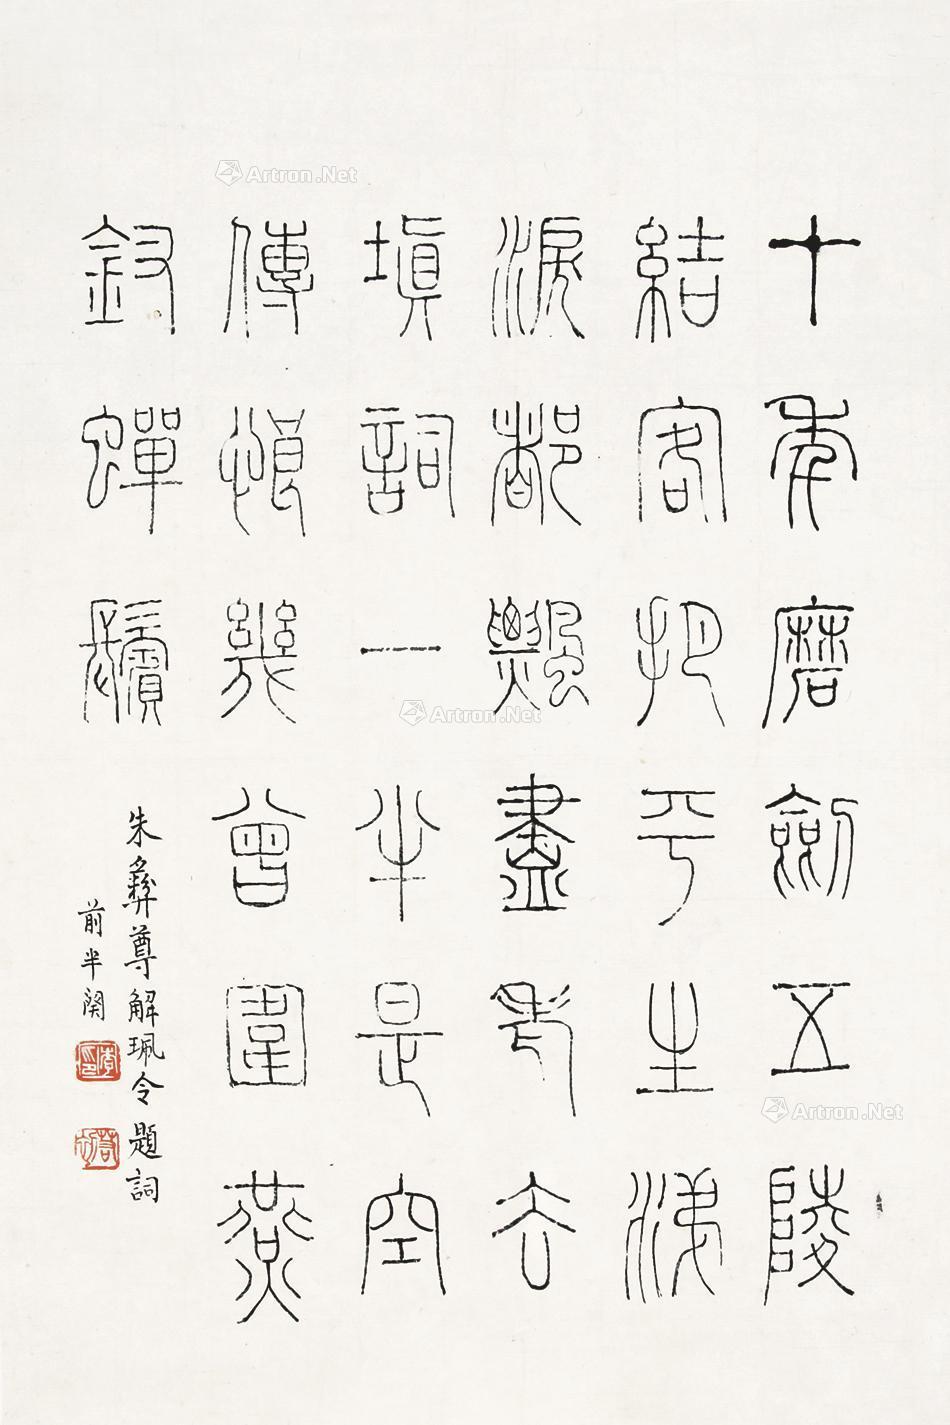 十年磨劍五陵
結客把平生涕
淚都飄盡老去
填詞一半是空
傳恨幾曾圍燕
釵蟬鬢
朱彝尊解珮令題詞
前半闋
Artron.Net
Artron.Net
Artron.Net